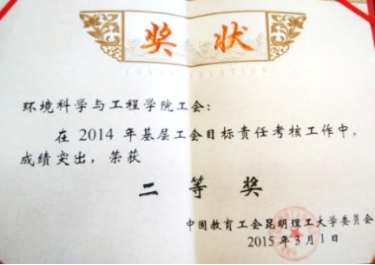 奖状
环境科学与工程学院工会:
在 2014 年基层工会目标责任考核工作中,
成绩突出, 荣获
二 等 奖
中国教育工会昆明理工大学委员会
2015 年 3 月 1 日